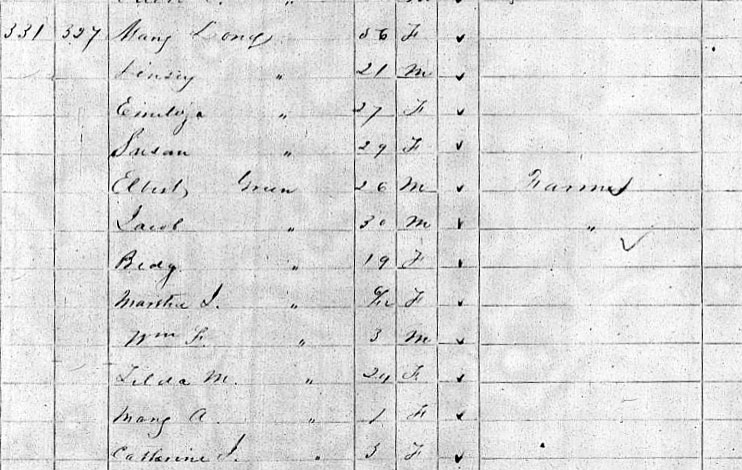 331 327 Mary Long 56 F ✓
" 21 M ✓
" 27 F ✓
Susan " 29 F ✓
Elbert Green 26 M ✓ Farmer
Jacob " 30 M ✓ "
" 19 F ✓
Martha J. " 6/12 F ✓
Wm F. " 3 M ✓
Tilda M. " 24 F ✓
Mary A. " 1 F ✓
Catharine J. " 3 F ✓